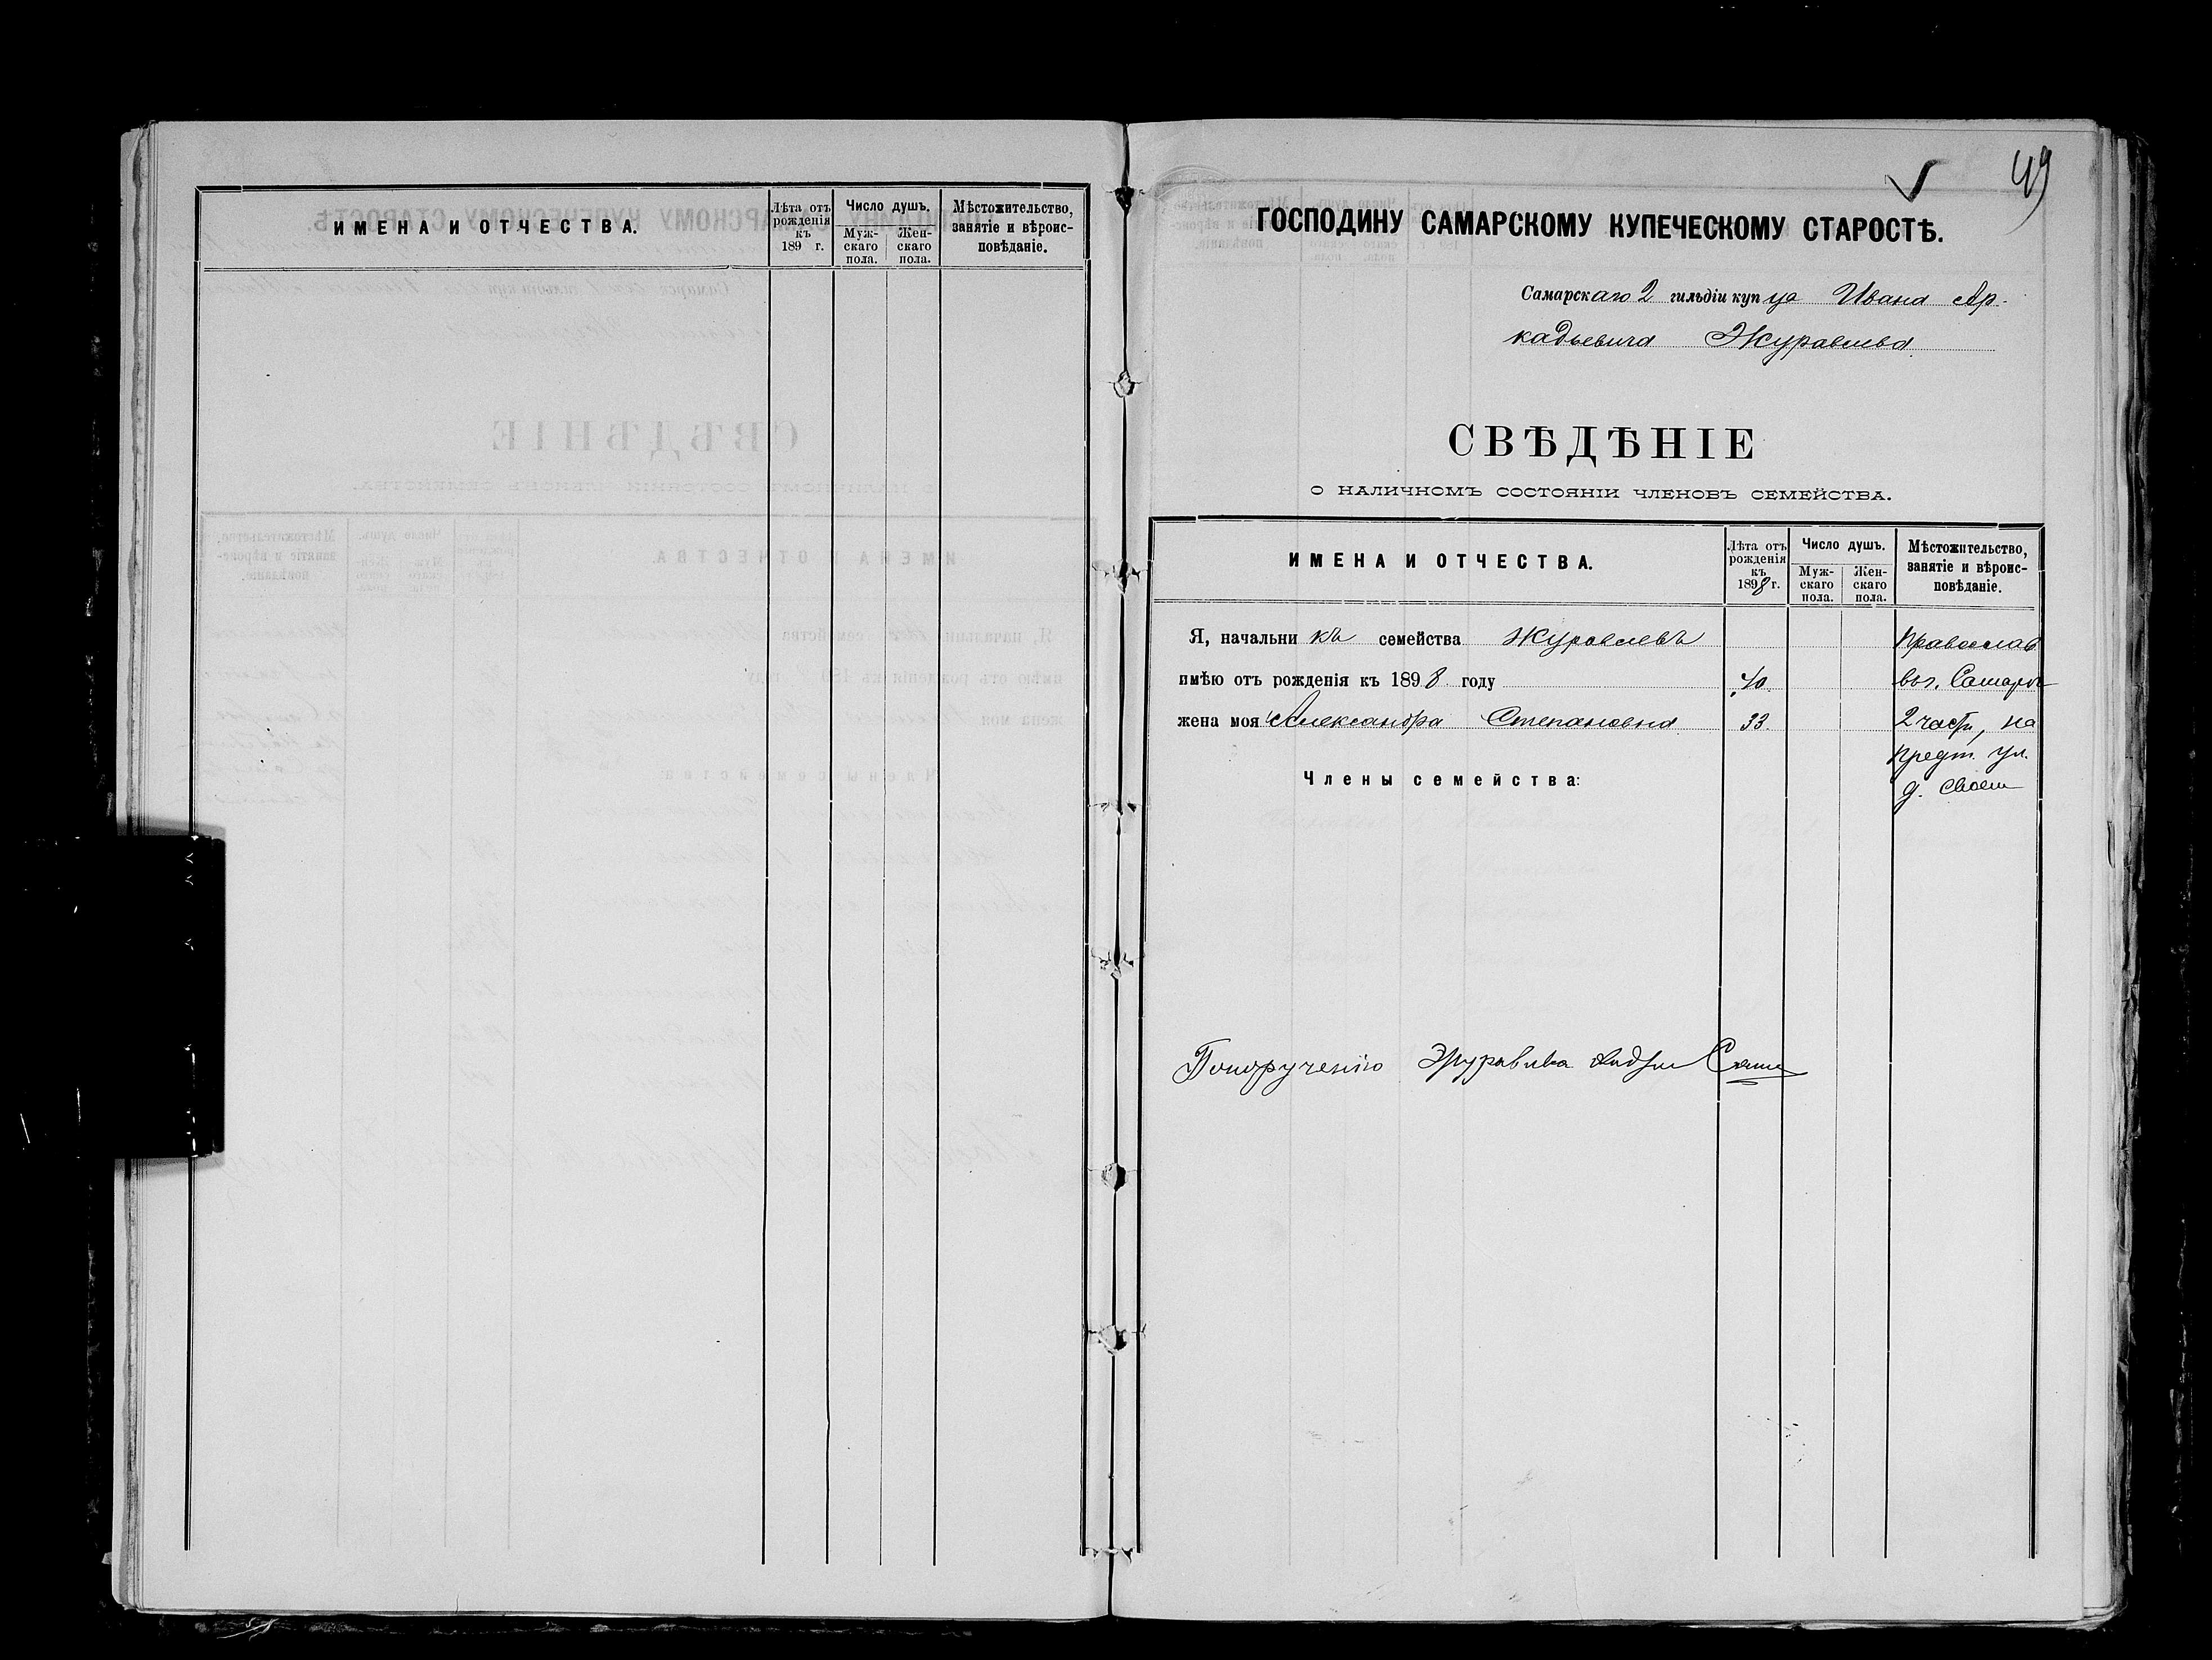 ИМЕНА И ОТЧЕСТВА.
Лѣта отъ рожденія къ 189 г.
Число душъ.
Мужскаго пола.
Женскаго пола.
Мѣстожительство, занятіе и вѣроисповѣданіе.
49
ГОСПОДИНУ САМАРСКОМУ КУПЕЧЕСКОМУ СТАРОСТѢ.
Самарскаго 2 гильдіи купца Ивана Ар-
кадьевича Журавлева
СВѢДѢНІЕ
О НАЛИЧНОМЪ СОСТОЯНІИ ЧЛЕНОВЪ СЕМЕЙСТВА.
ИМЕНА И ОТЧЕСТВА.
Лѣта отъ рожденія къ 1898 г.
Число душъ.
Мужскаго пола.
Женскаго пола.
Мѣстожительство, занятіе и вѣроисповѣданіе.
Я, начальникъ семейства Журавлевъ Православ.
имѣю отъ рожденія къ 1898 году 40. Самара
жена моя Александра Степановна 33. 2 части, на
Предт. ул.
Члены семейства: д. своем
По порученію Журавлева